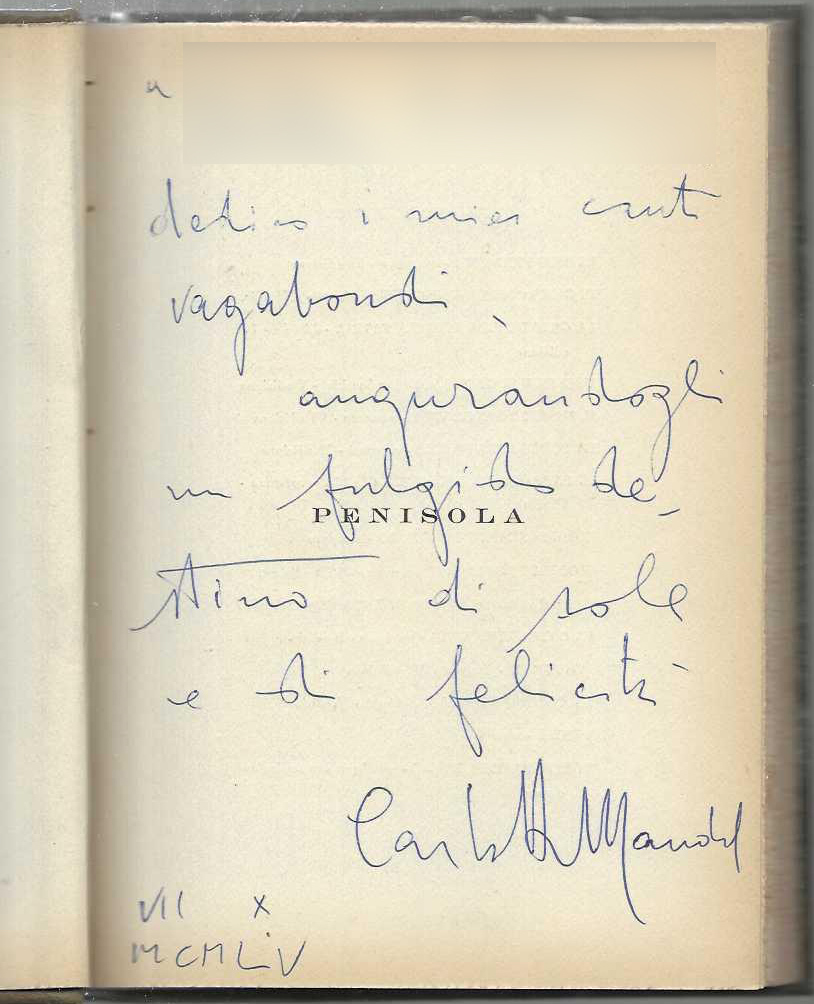 a
dedico i miei canti
vagabondi,
augurandogli
un fulgido de-
PENISOLA
stino di sole
e di felicità
Carlo H. Mandel
VII X
MCMLIV